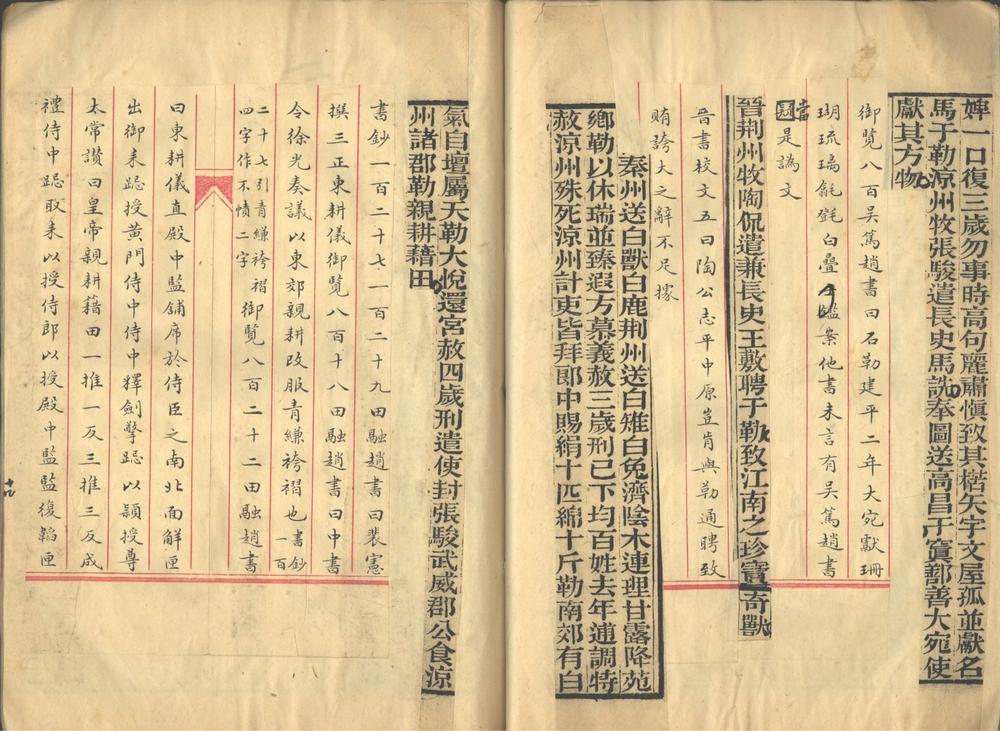 婢一口復三歲勿事時高句麗肅愼致其楛矢宇文屋孤並獻名
馬于勒涼州牧張駿遣長史馬詵奉圖送高昌于窴鄯善大宛使
獻其方物
御覽八百吳篤趙書曰石勒建平二年大宛獻珊
瑚琉璃㲪㲪白疊
案他書未言有吳篤趙書
當是譌文
晉荆州牧陶侃遣兼長史王敷聘于勒致江南之珍寶奇獸
晉書校文五曰陶公志平中原豈肯與勒通聘致
賄誇大之辭不足據
秦州送白獸白鹿荆州送白雉白兔濟陰木連理甘露降苑
鄉勒以休瑞並臻遐方慕義赦三歲刑已下均百姓去年逋調特
赦涼州殊死涼州計吏皆拜郞中賜絹十匹綿十斤勒南郊有白
氣自壇屬天勒大悅還宮赦四歲刑遣使封張駿武威郡公食涼
州諸郡勒親耕藉田
書鈔一百二十七一百二十九田融趙書曰裴憲
撰三正東耕儀御覽八百十八田融趙書曰中書
令徐光奏議以東郊親耕改服青縑袴褶也書鈔一百
二十七引青縑袴褶御覽八百二十二田融趙書
四字作不幘二字
曰東耕儀直殿中監舖席於侍臣之南北面解匣
出御耒跽授黃門侍中侍中釋劍擎跽以潁授尊
太常讚曰皇帝親耕藉田一推一反三推三反成
禮侍中跽取耒以授侍郎以授殿中監監復韜匣